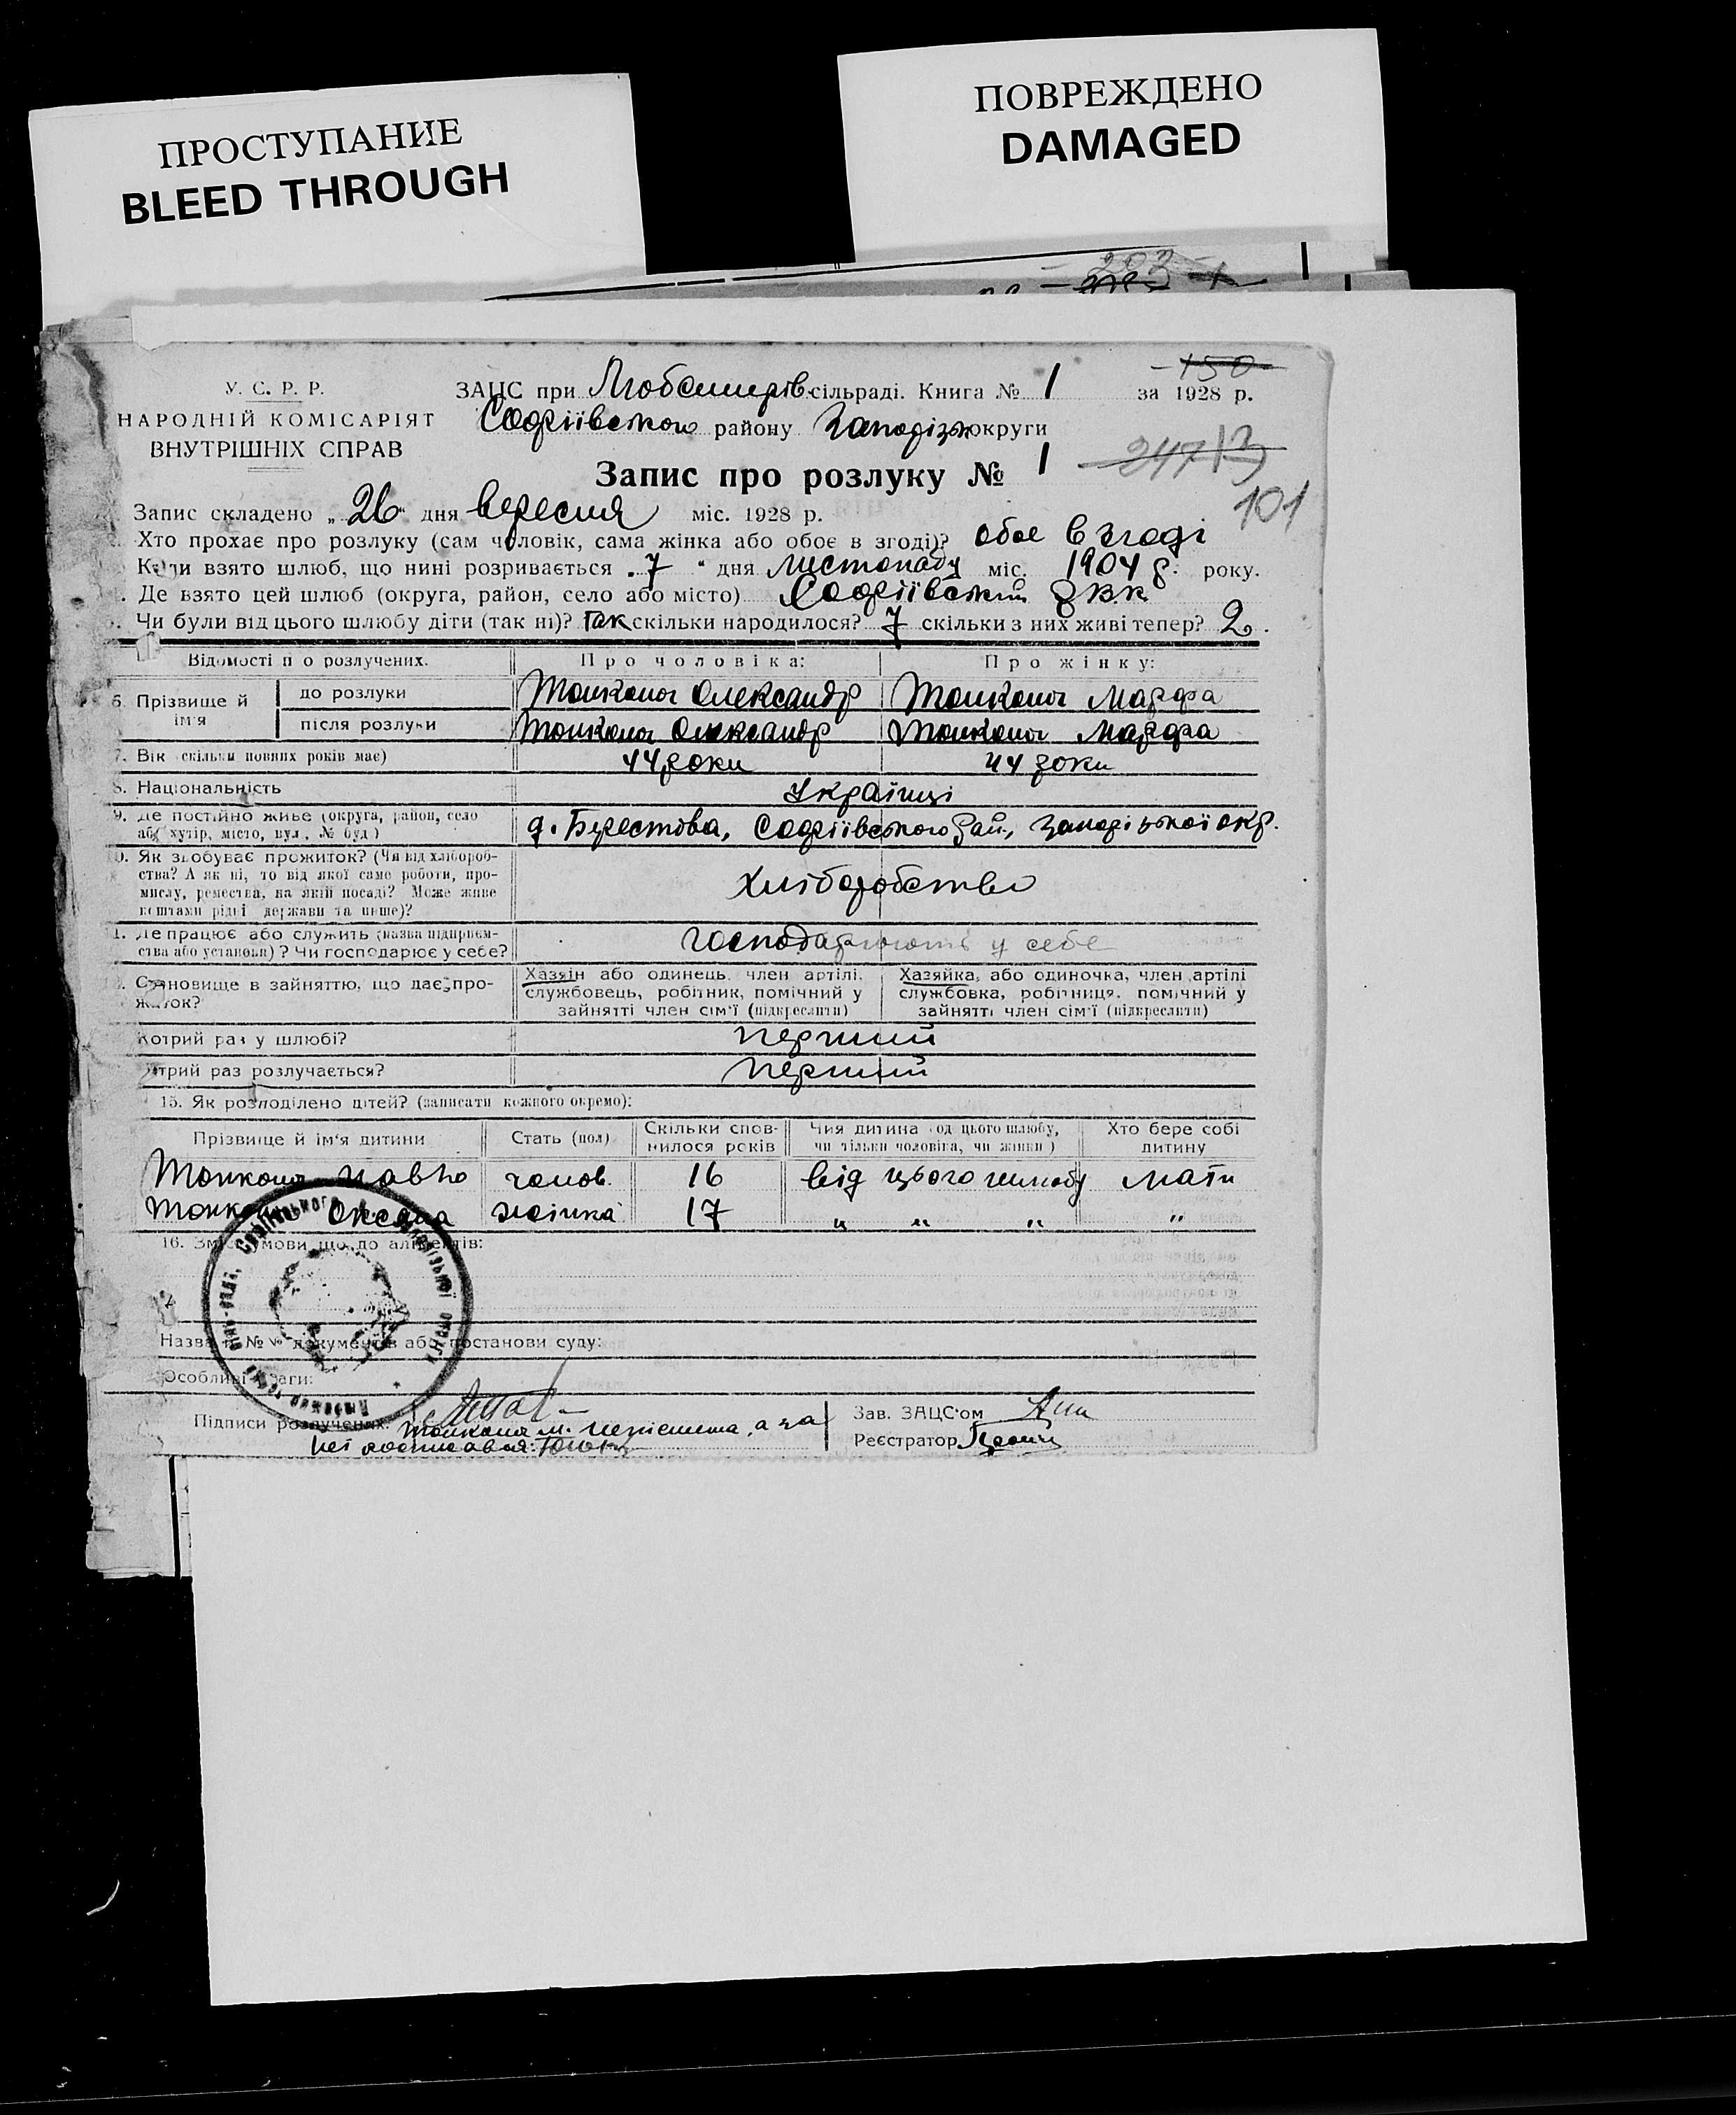 ПРОСТУПАНИЕ
BLEED THROUGH
ПОВРЕЖДЕНО
DAMAGED
У. С. Р. Р.
НАРОДНІЙ КОМІСАРІЯТ
ВНУТРІШНІХ СПРАВ
ЗАЦС при сільраді. Книга № 1 за 1928 р.
Софіївського району округи
Запис про розлуку № 1
101
Запис складено „26“ дня вересня міс. 1928 р.
Хто прохає про розлуку (сам чоловік, сама жінка або обоє в згоді)? обоє в згоді
Коли взято шлюб, що нині розривається „7“ дня листопаду міс. 1904 р. року.
Де взято цей шлюб (округа, район, село або місто) Софіївський
Чи були від цього шлюбу діти (так ні)? так скільки народилося? 7 скільки з них живі тепер? 2.
Відомості про розлучених. Про чоловіка: Про жінку:
6. Прізвище й ім'я до розлуки Олександр Марфа
після розлуки Олександр Марфа
7. Вік (скільки повних років має) 44 роки 44 роки
8. Національність Українці
9. Де постійно живе (округа, район, село
або хутір, місто, вул., № буд.) Берестова, Софіївського рай.,
10. Як здобуває прожиток? (Чи від хлібороб-
ства? А як ні, то від якої саме роботи, про-
мислу, ремества, на якій посаді? Може живе
коштами рідні держави та инше)? Хліборобство
11. Де працює або служить (назва підприєм-
ства або установи)? Чи господарює у себе? господарюють у себе
Становище в зайняттю, що дає про-
житок?
Хазяїн або одинець, член артілі,
службовець, робітник, помічний у
зайнятті член сім'ї (підкреслити)
Хазяйка, або одиночка, член артілі
службовка, робітниця, помічний у
зайнятті член сім'ї (підкреслити)
Котрий раз у шлюбі? перший
Котрий раз розлучається? перший
15. Як розподілено дітей? (записати кожного окремо):
Прізвище й ім'я дитини
Стать (пол)
Скільки спов-
нилося років
Чия дитина (од цього шлюбу,
чи тільки чоловіка, чи жінки)
Хто бере собі
дитину
Павло чолов. 16 від цього шлюбу мати
Оксана жінка 17 „ „ „ „
16. Зміст умови що до аліментів:
Назва й №№ документів або постанови суду:
Особливі
Підписи розлучених:
Зав. ЗАЦС'ом
Реєстратор